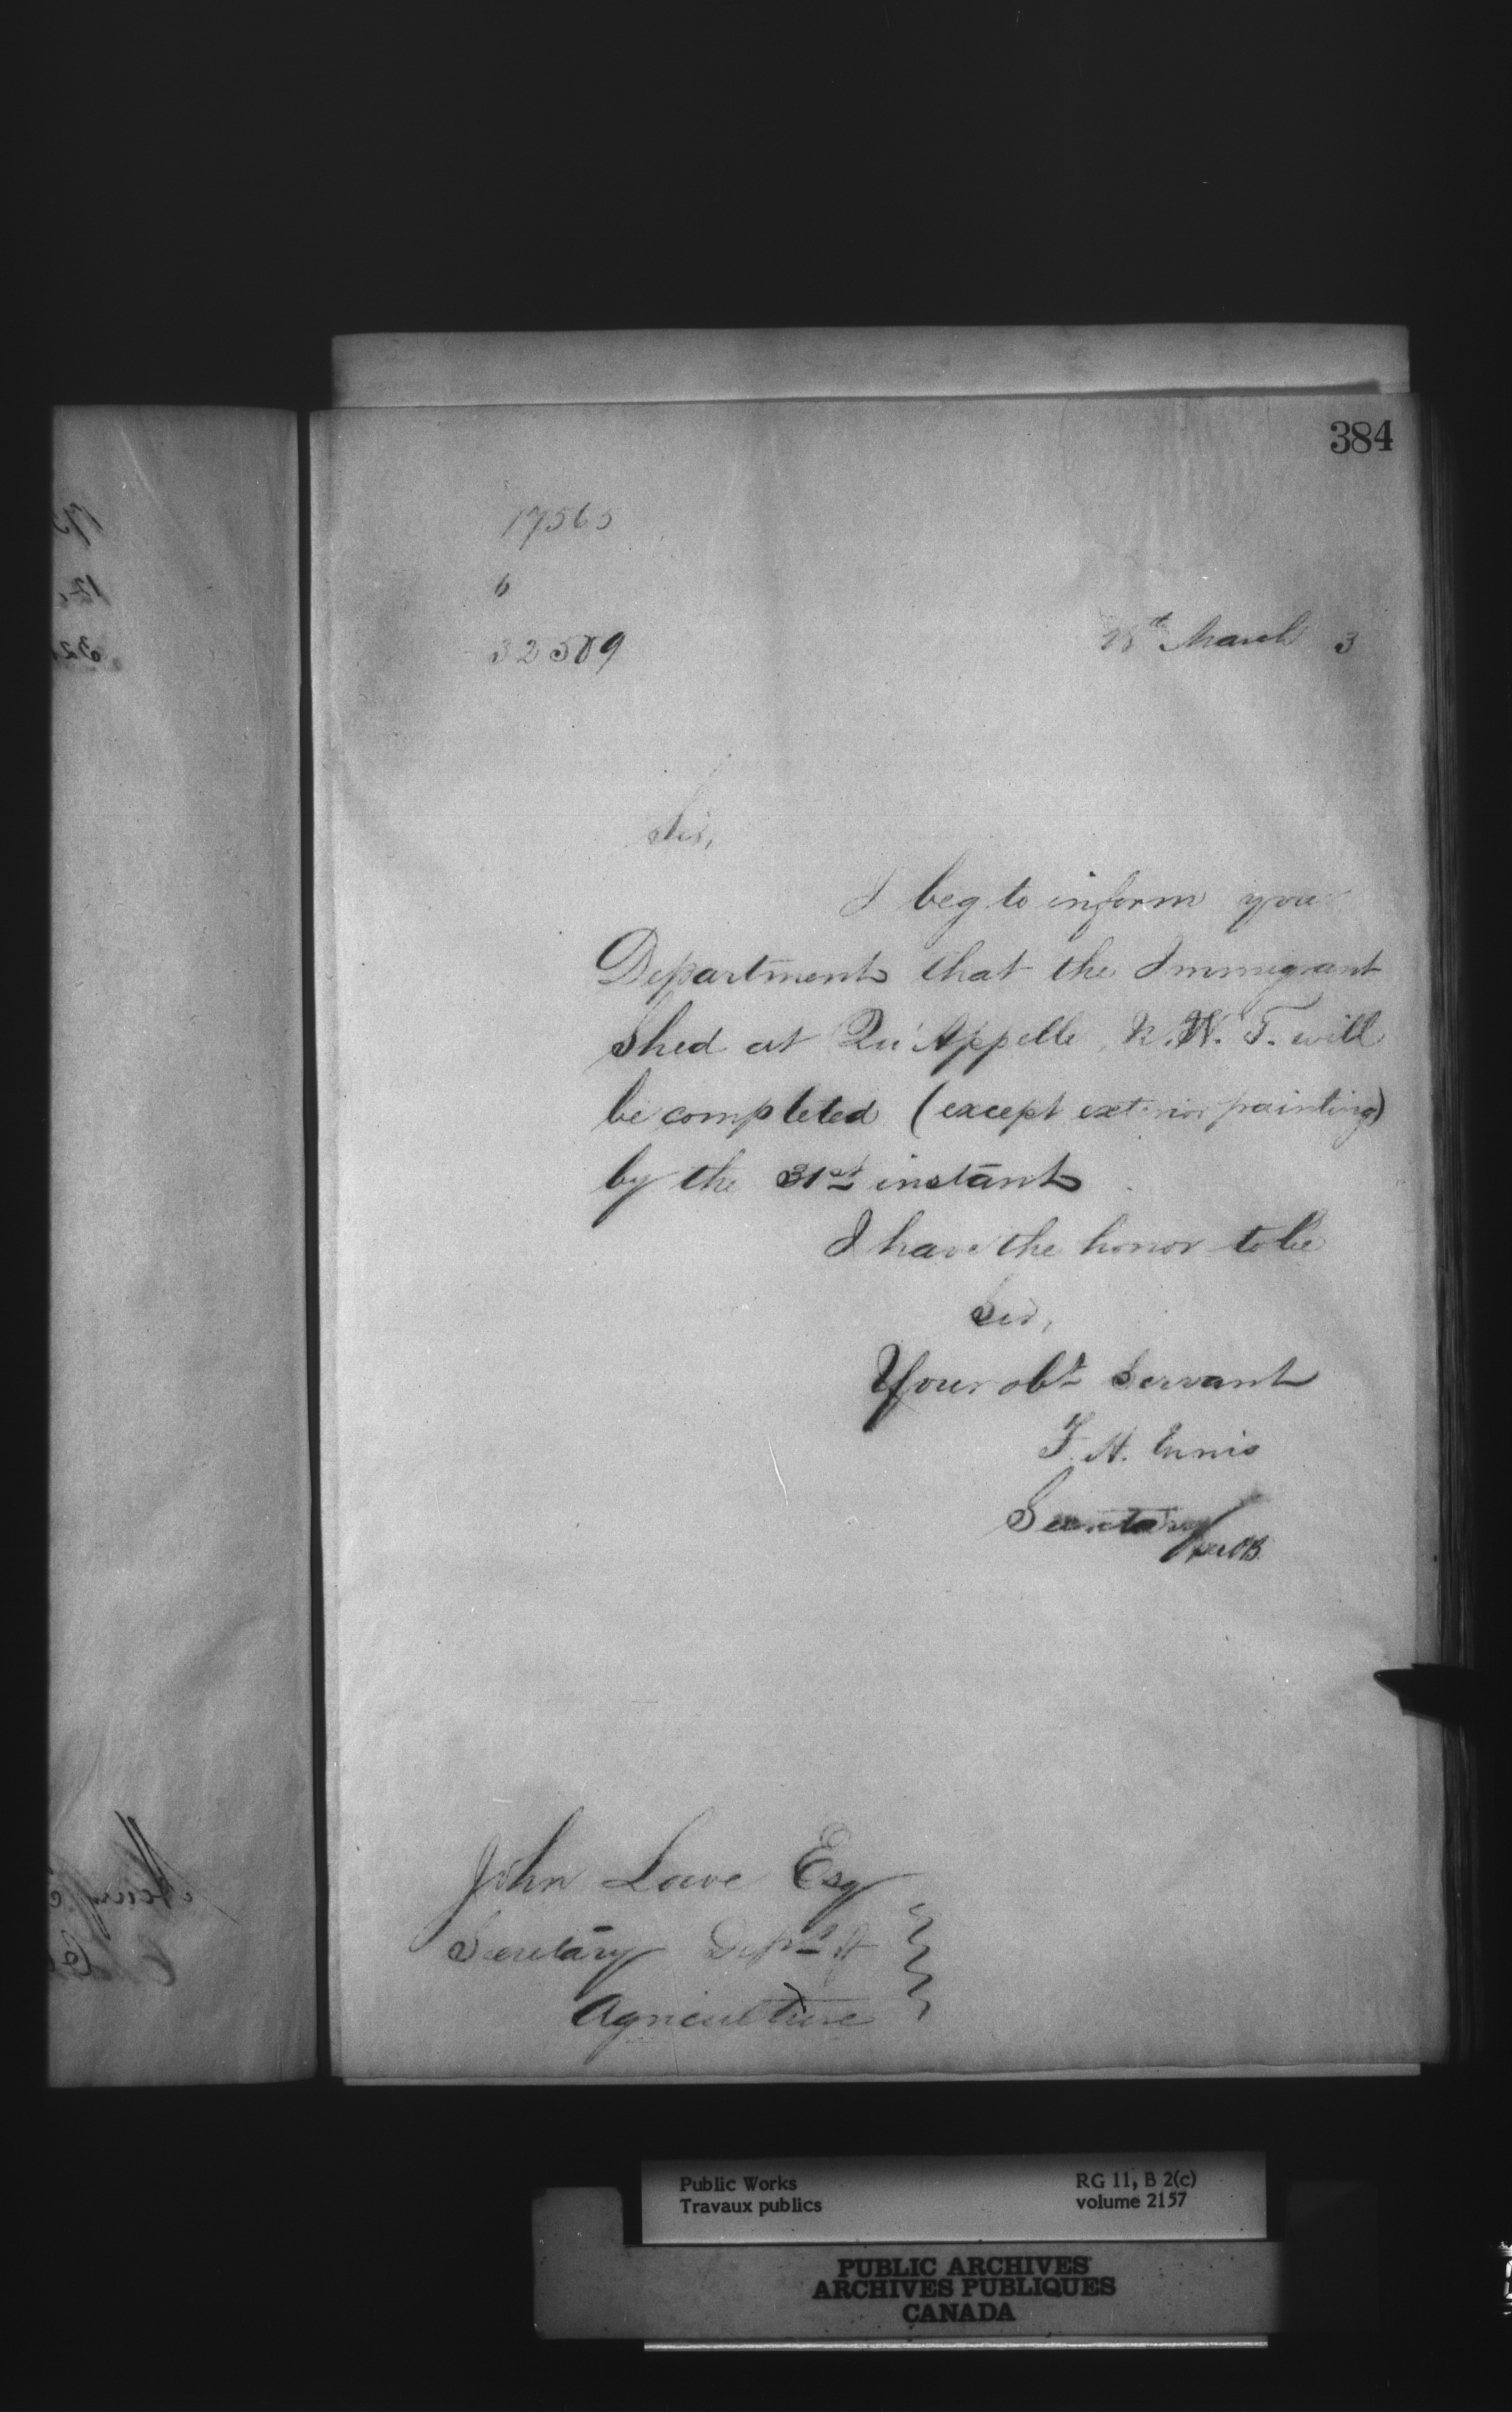 384
17565
6
32589
28th March 3
Sir,
I beg to inform your
Department that the Immigrant
Shed at Qu'Appelle, N. W. T. will
be completed (except exterior painting)
by the 31st instant
I have the honor to be
Sir,
Your obt Servant
F. H. Ennis
Secretary
per OB
John Lowe Esq
Secretary Depmt of
Agriculture
Public Works
Travaux publics
RG 11, B 2(c)
volume 2157
PUBLIC ARCHIVES
ARCHIVES PUBLIQUES
CANADA